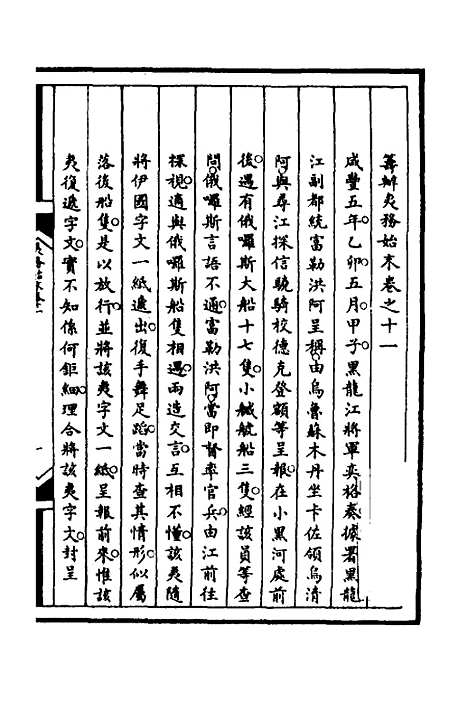 籌辦夷務始末卷之十一
咸豐五年乙卯五月甲子黑龍江將軍奕格奏據署黑龍
江副都統富勒洪阿呈稱由烏魯蘇木丹坐卡佐領烏清
阿與尋江探信驍騎校德克登額等呈報在小黑河處前
後遇有俄囉斯大船十七隻小艤艈船三隻經該員等查
問俄囉斯言語不通富勒洪阿當即督率官兵由江前往
探視適與俄囉斯船隻相遇兩造交言互相不懂該夷隨
將伊國字文一紙遞出復手舞足蹈當時查其情形似屬
落後船隻是以放行並將該夷字文一紙呈報前來惟該
夷復遞字文實不知係何鉅細理合將該夷字文封呈